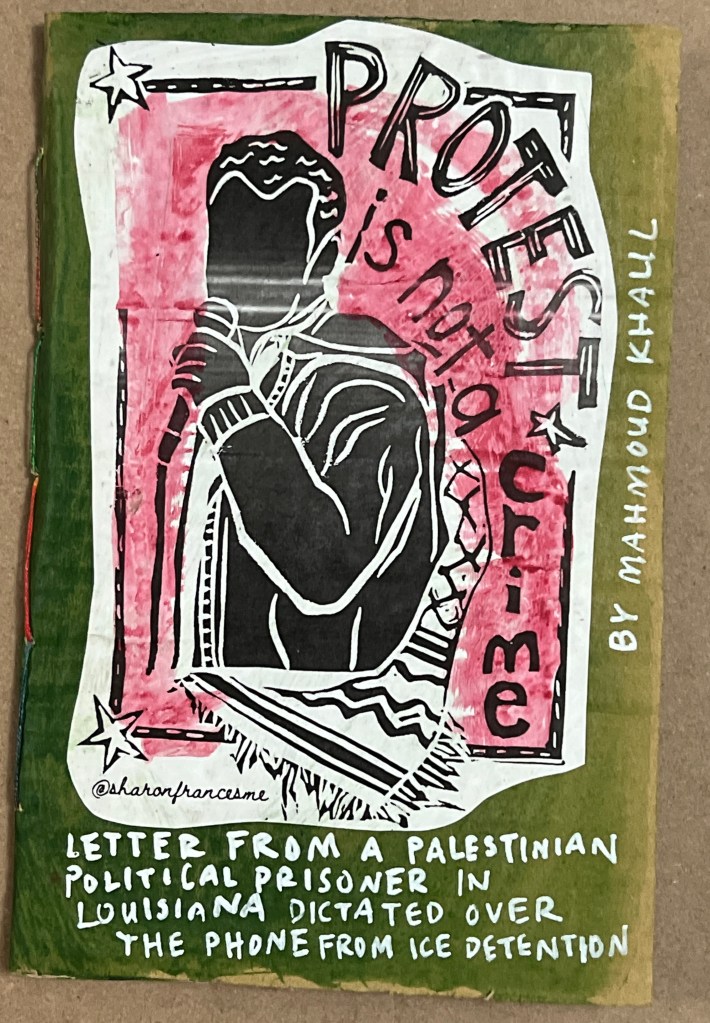 PROTEST
is not a
crime
BY MAHMOUD KHALIL
@sharonfrancesme
LETTER FROM A PALESTINIAN
POLITICAL PRISONER IN
LOUISIANA DICTATED OVER
THE PHONE FROM ICE DETENTION